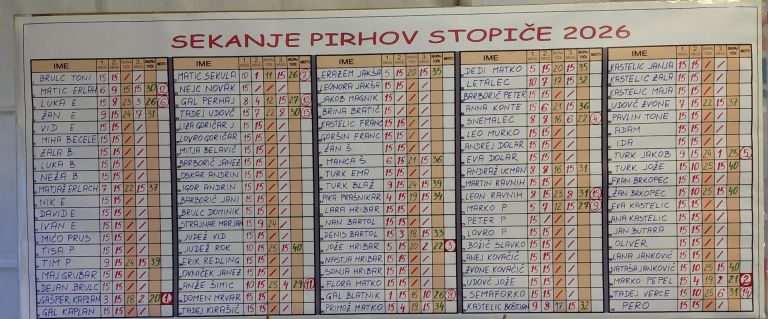 SEKANJE PIRHOV STOPIČE 2026
IME 1. 2. 3. MESTO
BRULC TONI 15 15 / / /
MATIC ERLAH 6 9 15 15 30 12
LUKA E 15 8 23 3 26 6
ŽAN E 15 9 24 7 31
VID E 15 15 / / /
MIHA BECELE 15 15 / / /
ŽALA B 15 15 / / /
LUKA B 15 15 / / /
NEŽA B 15 15 / / /
MATJAŽ ERLACH 7 15 22 15 37
NIK E 15 15 / / /
DAVID E 15 15 / / /
IVAN E 15 15 / / /
MIČO PRUS 15 15 / / /
TISA P 15 15 / / /
TIM P 9 15 24 15 39
MAJ GRUBAR 15 15 / / /
DEJAN BRULC 15 15 / / /
GAŠPER KAPLAN 3 15 18 2 20 1
GAL KAPLAN 15 15 / / /
IME 1. 2. 3. MESTO
MATIC SEKULA 10 1 11 15 26 7
NEJC NOVAK 15 15 / / /
GAL PERHAJ 8 4 12 15 27 10
TADEJ UDOVČ 15 7 22 8 30
LIZA GORIČAR 15 15 / / /
LOVRO GORIČAR 15 15 / / /
MITJA BELAVIČ 15 15 / / /
BARBORIČ JANEZ 15 15 / / /
OSKAR ANDRIN 15 15 / / /
IGOR ANDRIN 15 15 / / /
BARBORIČ JANI 15 15 / / /
BRULC DOMINIK 15 15 / / /
STRAJNAR MARJAN 15 9 24
JUDEŽ VLD 15 15 / / /
JUDEŽ ROK 10 15 25 15 40
ERIK REDLING 15 15 / / /
JOVNIČEK JANEZ 15 15 / / /
ANŽE ŠIMIC 10 15 25 4 29 11
DOMEN MRVAR 15 15 / / /
TADEJ KIRAŠIČ 15 15 / / /
IME 1. 2. 3. MESTO
ERAZEM JAKŠA 5 15 20 15 35
LEONORA JAKŠA 15 15 / / /
JAKOB MAGNIK 15 15 / / /
BRINA BRATIČ 15 15 / / /
KASTELIC FRANC 15 15 / / /
GORŠIN FRANC 15 15 / / /
ŽAN Š. 15 15 / / /
MANCA Š 6 15 21 15 36
TURK EMA 15 15 / / /
TURK BLAŽ 9 15 24 15 39
PIKA PRAŠNIKAR 4 15 19 15 34
LARA HRIBAR 15 15 / / /
NAN BARTOL 15 15 / / /
DENIS BARTOL 15 3 18 15 33
JOŽE HRIBAR 5 15 20 2 22 3
NASTJA HRIBAR 15 15 / / /
SONJA HRIBAR 15 15 / / /
FLORA MATKO 15 15 / / /
GAL BLATNIK 1 15 16 10 26 8
PRIMOŽ MATKO 15 4 19 15 34
IME 1. 2. 3. MESTO
DEDI MATKO 5 15 20 15 35
LETALEC 10 7 17 15 32
BARBORIČ PETER 15 15 / / /
ANNA KONTE 15 6 21 15 36
SNEMALEC 8 8 16 6 22 4
LEO MURKO 15 15 / / /
ANDREJ DOLAR 15 15 / / /
EVA DOLAR 15 15 / / /
ANDRAŽ UCMAN 8 8 16 15 31
MARTIN RAVNIH 15 15 / / /
LEON RAVNIH 8 15 23 8 31 15
MARKO P 5 7 12 15 27 9
PETER P 15 15 / / /
LOVRO P 15 15 / / /
BOŽIČ SLAVKO 15 15 / / /
ANEJ KOVAČIČ 15 15 / / /
ZVONE KOVAČIČ 15 15 / / /
UDOVČ JOŽE 15 15 / / /
SEMAFORKO 15 15 / / /
KASTELIC BOŠTJAN 9 8 17 15 32
IME 1. 2. 3. MESTO
KASTELIC JANJA 15 15 / / /
KASTELIC ŽALA 15 15 / / /
KASTELIC MAJA 15 15 / / /
UDOVČ ZVONE 7 15 22 15 37
PAVLIN TONE 15 15 / / /
ADAM 15 15 / / /
IDA 15 15 / / /
TURK JAKOB 9 15 24 1 25 5
TURK JOŽE 15 10 25 15 40
FRAN BRKOPEC 15 15 / / /
ŽAN BRKOPEC 15 10 25 15 40
EVA KASTELIC 15 15 / / /
ANA KASTELIC 15 15 / / /
JAN BUTARA 15 15 / / /
OLIVER 15 15 / / /
JANEL JANKOVIČ 15 15 / / /
NATAŠA JANKOVIČ 15 10 25 15 40
MARKO PEPEL 15 4 19 2 21 2
TADEJ VERCE 15 10 25 6 31 14
PERO 15 15 / / /